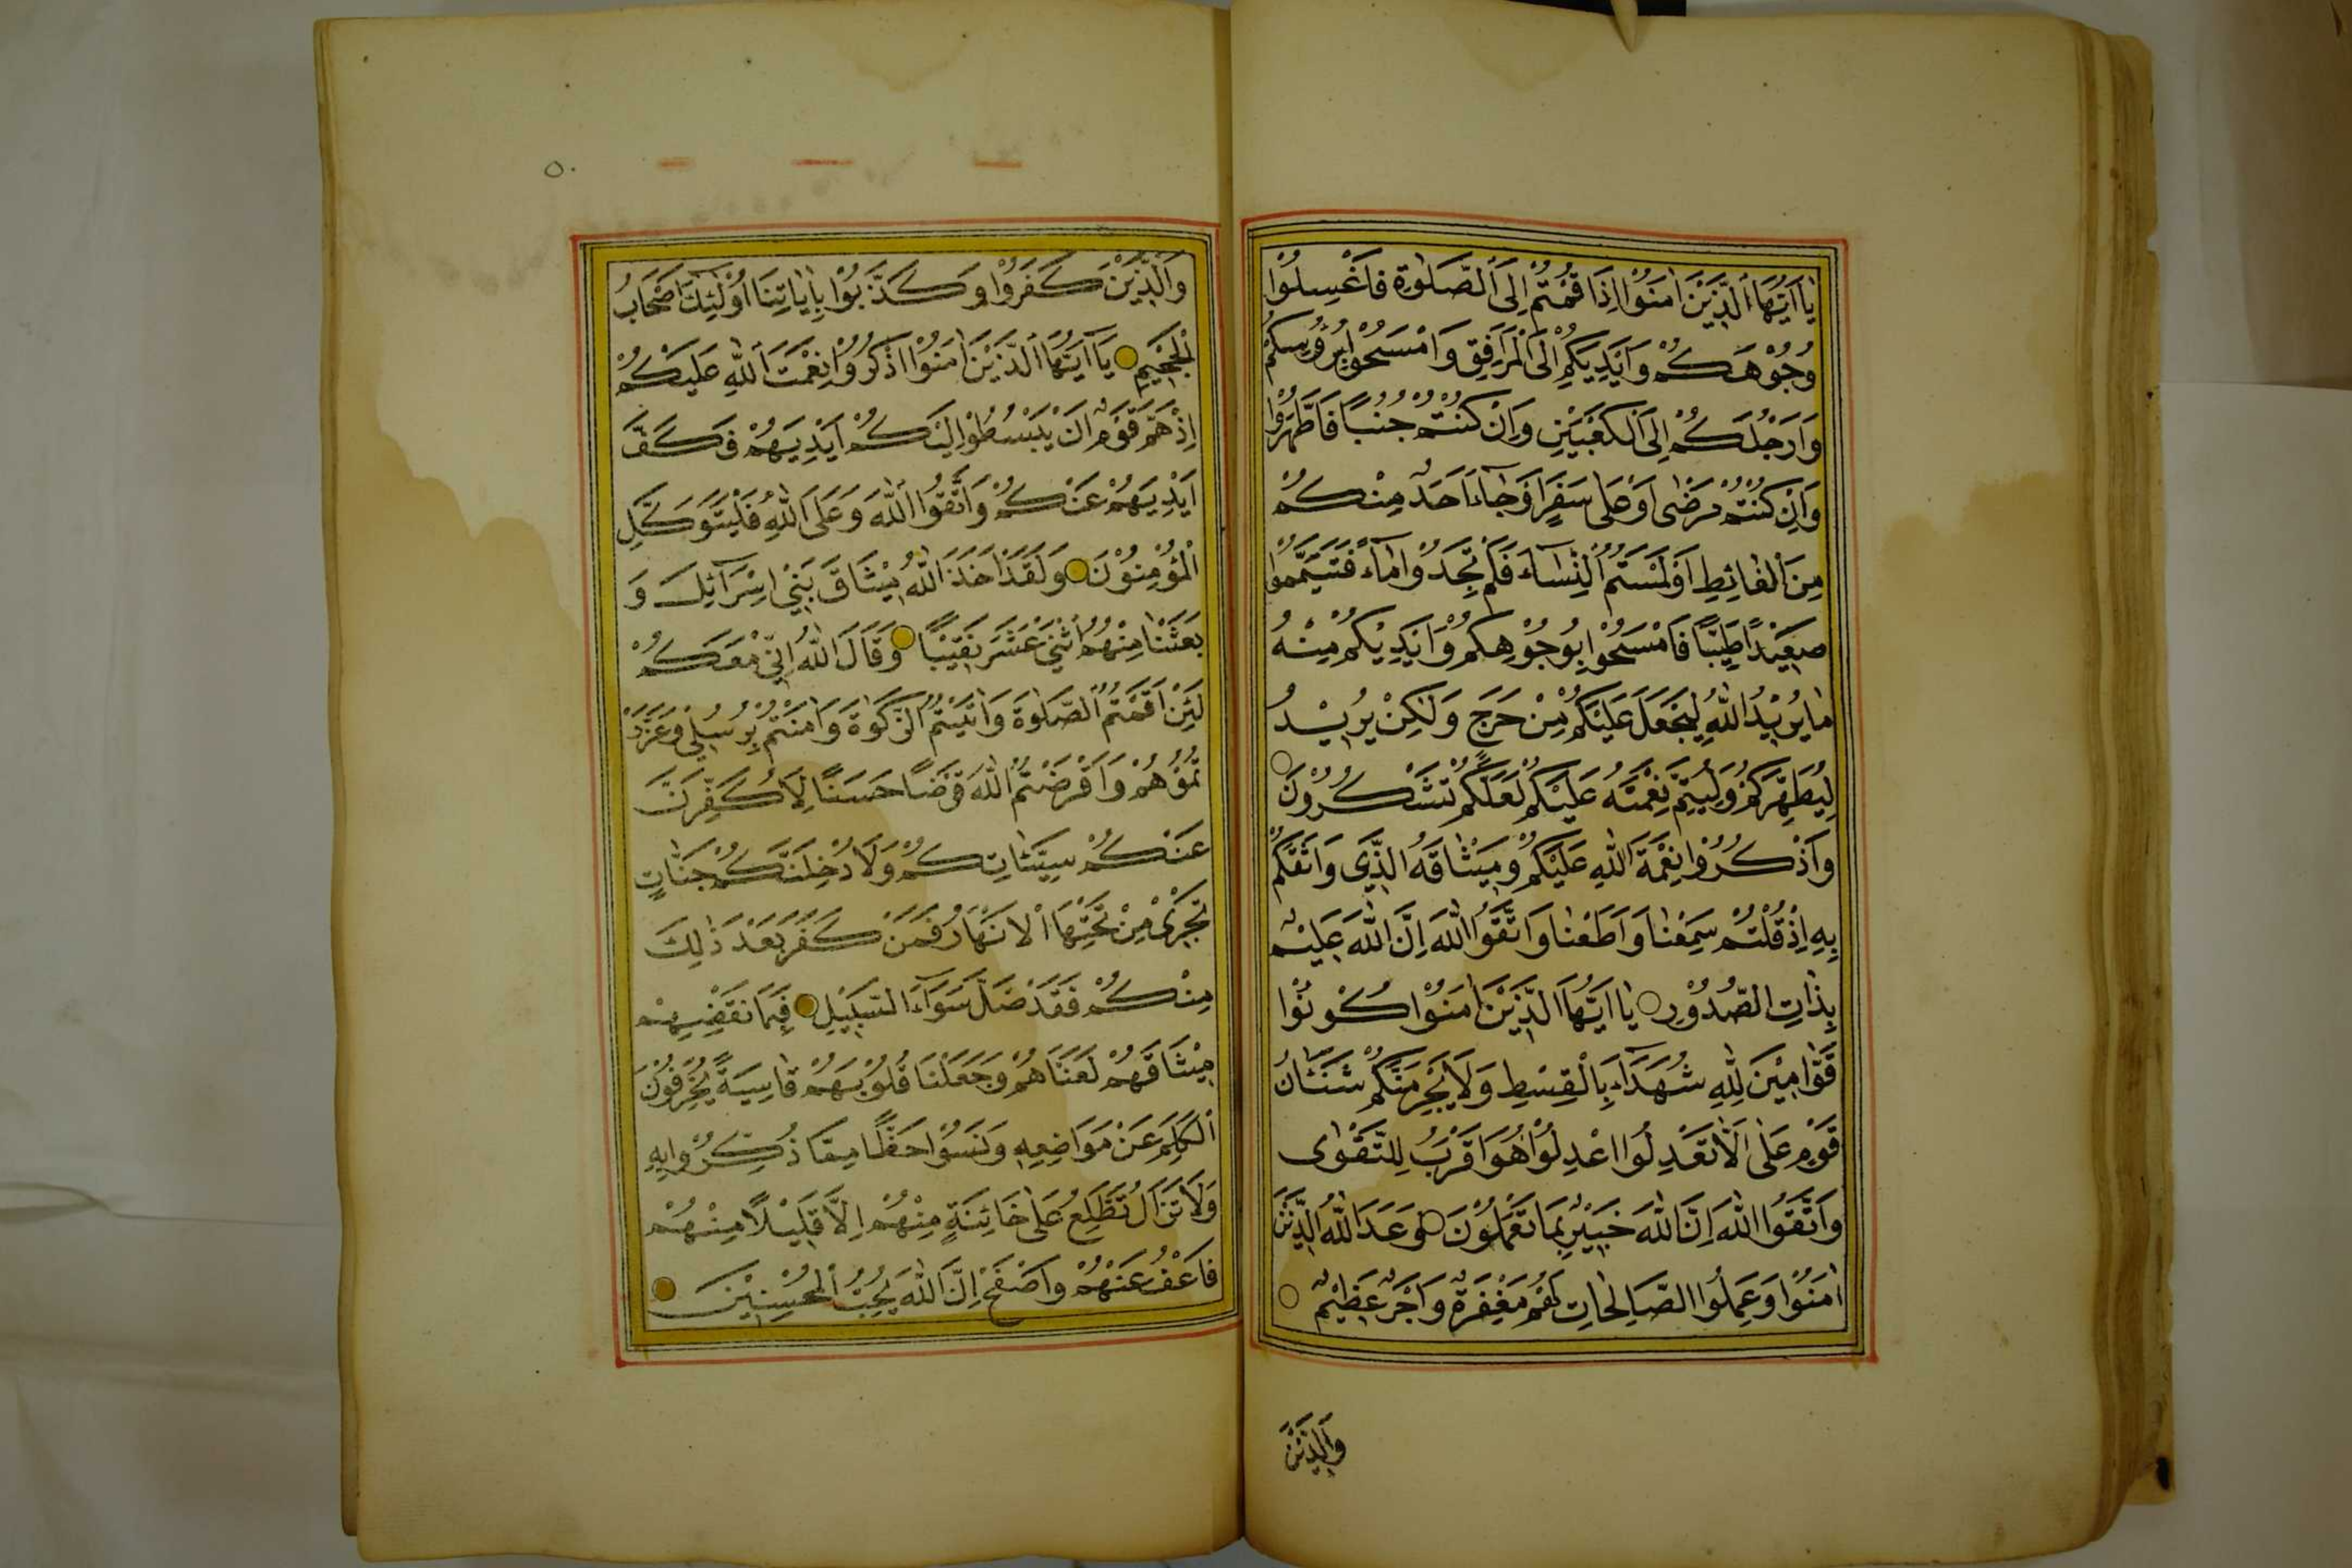 يَا اَيُّهَا الَّذِيْنَ اٰمَنُوْا اِذَا قُمْتُمْ اِلَى الصَّلٰوةِ فَاغْسِلُوْا
وُجُوْهَكُمْ وَاَيْدِيَكُمْ اِلَى الْمَرَافِقِ وَامْسَحُوْا بِرُؤُسِكُمْ
وَاَرْجُلَكُمْ اِلَى الْكَعْبَيْنِ وَاِنْ كُنْتُمْ جُنُبًا فَاطَّهَّرُوْا
وَاِنْ كُنْتُمْ مَرْضٰى اَوْ عَلٰى سَفَرٍ اَوْ جَاءَ اَحَدٌ مِنْكُمْ
مِنَ الْغَائِطِ اَوْ لٰمَسْتُمُ النِّسَاءَ فَلَمْ تَجِدُوْا مَاءً فَتَيَمَّمُوْا
صَعِيْدًا طَيِّبًا فَامْسَحُوْا بِوُجُوْهِكُمْ وَاَيْدِيْكُمْ مِنْهُ
مَا يُرِيْدُ اللّٰهُ لِيَجْعَلَ عَلَيْكُمْ مِنْ حَرَجٍ وَلٰكِنْ يُرِيْدُ
لِيُطَهِّرَكُمْ وَلِيُتِمَّ نِعْمَتَهُ عَلَيْكُمْ لَعَلَّكُمْ تَشْكُرُوْنَ
وَاذْكُرُوْا نِعْمَةَ اللّٰهِ عَلَيْكُمْ وَمِيْثَاقَهُ الَّذِيْ وَاثَقَكُمْ
بِهِ اِذْ قُلْتُمْ سَمِعْنَا وَاَطَعْنَا وَاتَّقُوا اللّٰهَ اِنَّ اللّٰهَ عَلِيْمٌ
بِذَاتِ الصُّدُوْرِ يَا اَيُّهَا الَّذِيْنَ اٰمَنُوْا كُوْنُوْا
قَوَّامِيْنَ لِلّٰهِ شُهَدَاءَ بِالْقِسْطِ وَلَا يَجْرِمَنَّكُمْ شَنَئَانُ
قَوْمٍ عَلٰى اَلَّا تَعْدِلُوْا اعْدِلُوْا هُوَ اَقْرَبُ لِلتَّقْوٰى
وَاتَّقُوا اللّٰهَ اِنَّ اللّٰهَ خَبِيْرٌ بِمَا تَعْمَلُوْنَ وَعَدَ اللّٰهُ الَّذِيْنَ
اٰمَنُوْا وَعَمِلُوا الصَّالِحَاتِ لَهُمْ مَغْفِرَةٌ وَاَجْرٌ عَظِيْمٌ
وَالَّذِيْنَ
٥٠
وَالَّذِيْنَ كَفَرُوْا وَكَذَّبُوْا بِاٰيَاتِنَا اُوْلٰئِكَ اَصْحَابُ
الْجَحِيْمِ يَا اَيُّهَا الَّذِيْنَ اٰمَنُوْا اذْكُرُوْا نِعْمَتَ اللّٰهِ عَلَيْكُمْ
اِذْ هَمَّ قَوْمٌ اَنْ يَبْسُطُوْا اِلَيْكُمْ اَيْدِيَهُمْ فَكَفَّ
اَيْدِيَهُمْ عَنْكُمْ وَاتَّقُوا اللّٰهَ وَعَلَى اللّٰهِ فَلْيَتَوَكَّلِ
الْمُؤْمِنُوْنَ وَلَقَدْ اَخَذَ اللّٰهُ مِيْثَاقَ بَنِيْ اِسْرَآئِلَ وَ
بَعَثْنَا مِنْهُمُ اثْنَيْ عَشَرَ نَقِيْبًا وَقَالَ اللّٰهُ اِنِّيْ مَعَكُمْ
لَئِنْ اَقَمْتُمُ الصَّلٰوةَ وَاٰتَيْتُمُ الزَّكٰوةَ وَاٰمَنْتُمْ بِرُسُلِيْ وَعَزَّرْ
تُمُوْهُمْ وَاَقْرَضْتُمُ اللّٰهَ قَرْضًا حَسَنًا لَاُكَفِّرَنَّ
عَنْكُمْ سَيِّئَاتِكُمْ وَلَاُدْخِلَنَّكُمْ جَنَّاتٍ
تَجْرِيْ مِنْ تَحْتِهَا الْاَنْهَارُ فَمَنْ كَفَرَ بَعْدَ ذٰلِكَ
مِنْكُمْ فَقَدْ ضَلَّ سَوَآءَ السَّبِيْلِ فَبِمَا نَقْضِهِمْ
مِيْثَاقَهُمْ لَعَنَّاهُمْ وَجَعَلْنَا قُلُوْبَهُمْ قَاسِيَةً يُحَرِّفُوْنَ
الْكَلِمَ عَنْ مَوَاضِعِهِ وَنَسُوْا حَظًّا مِمَّا ذُكِّرُوْا بِهِ
وَلَا تَزَالُ تَطَّلِعُ عَلٰى خَائِنَةٍ مِنْهُمْ اِلَّا قَلِيْلًا مِنْهُمْ
فَاعْفُ عَنْهُمْ وَاصْفَحْ اِنَّ اللّٰهَ يُحِبُّ الْمُحْسِنِيْنَ